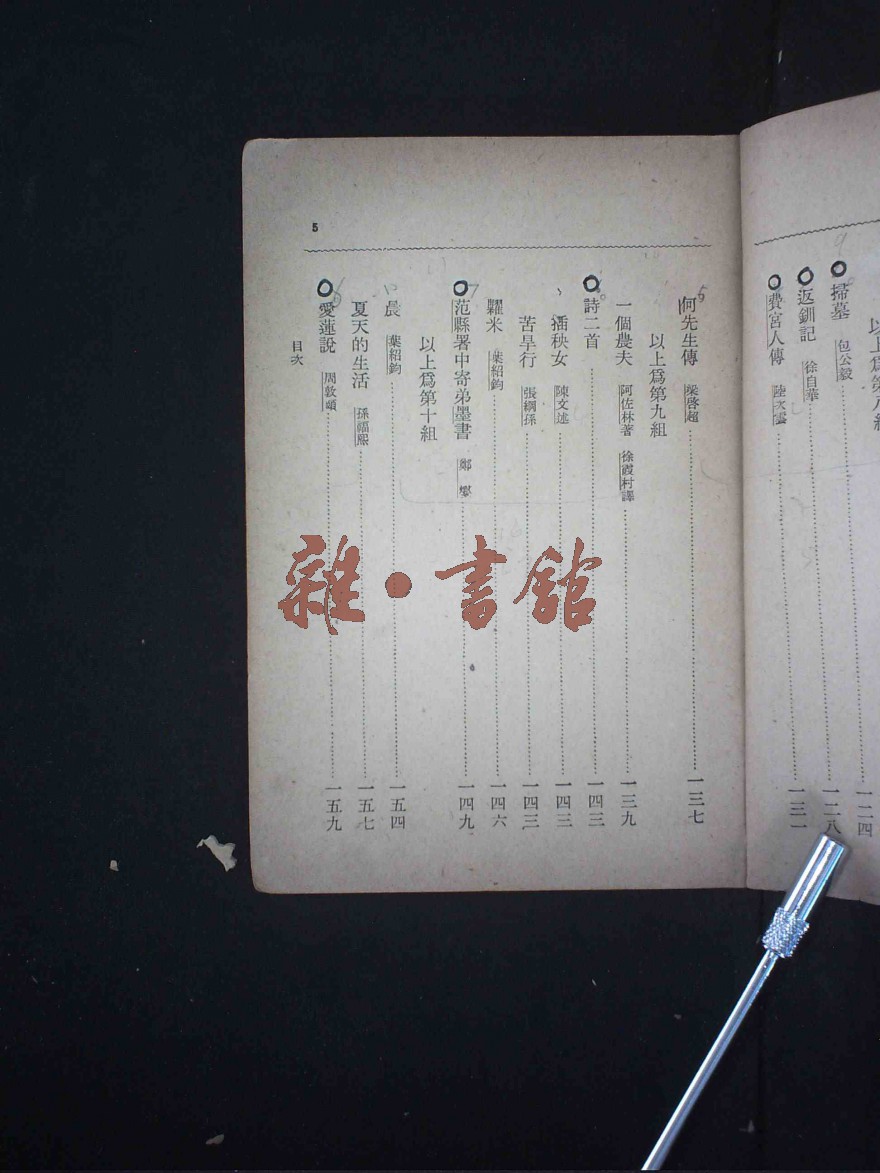 掃墓 包公毅 一二四
返釧記 徐自華 一二八
費宮人傳 陸次雲 一三一
何先生傳 梁啓超 一三七
以上爲第九組
一個農夫 阿佐林著 徐霞村譯 一三九
詩二首 一四三
插秧女 陳文述 一四三
苦旱行 張綱孫 一四三
糶米 葉紹鈞 一四六
范縣署中寄弟墨書 鄭燮 一四九
以上爲第十組
晨 葉紹鈞 一五四
夏天的生活 孫福熙 一五七
愛蓮說 周敦頤 一五九
目次
5
雜·書館